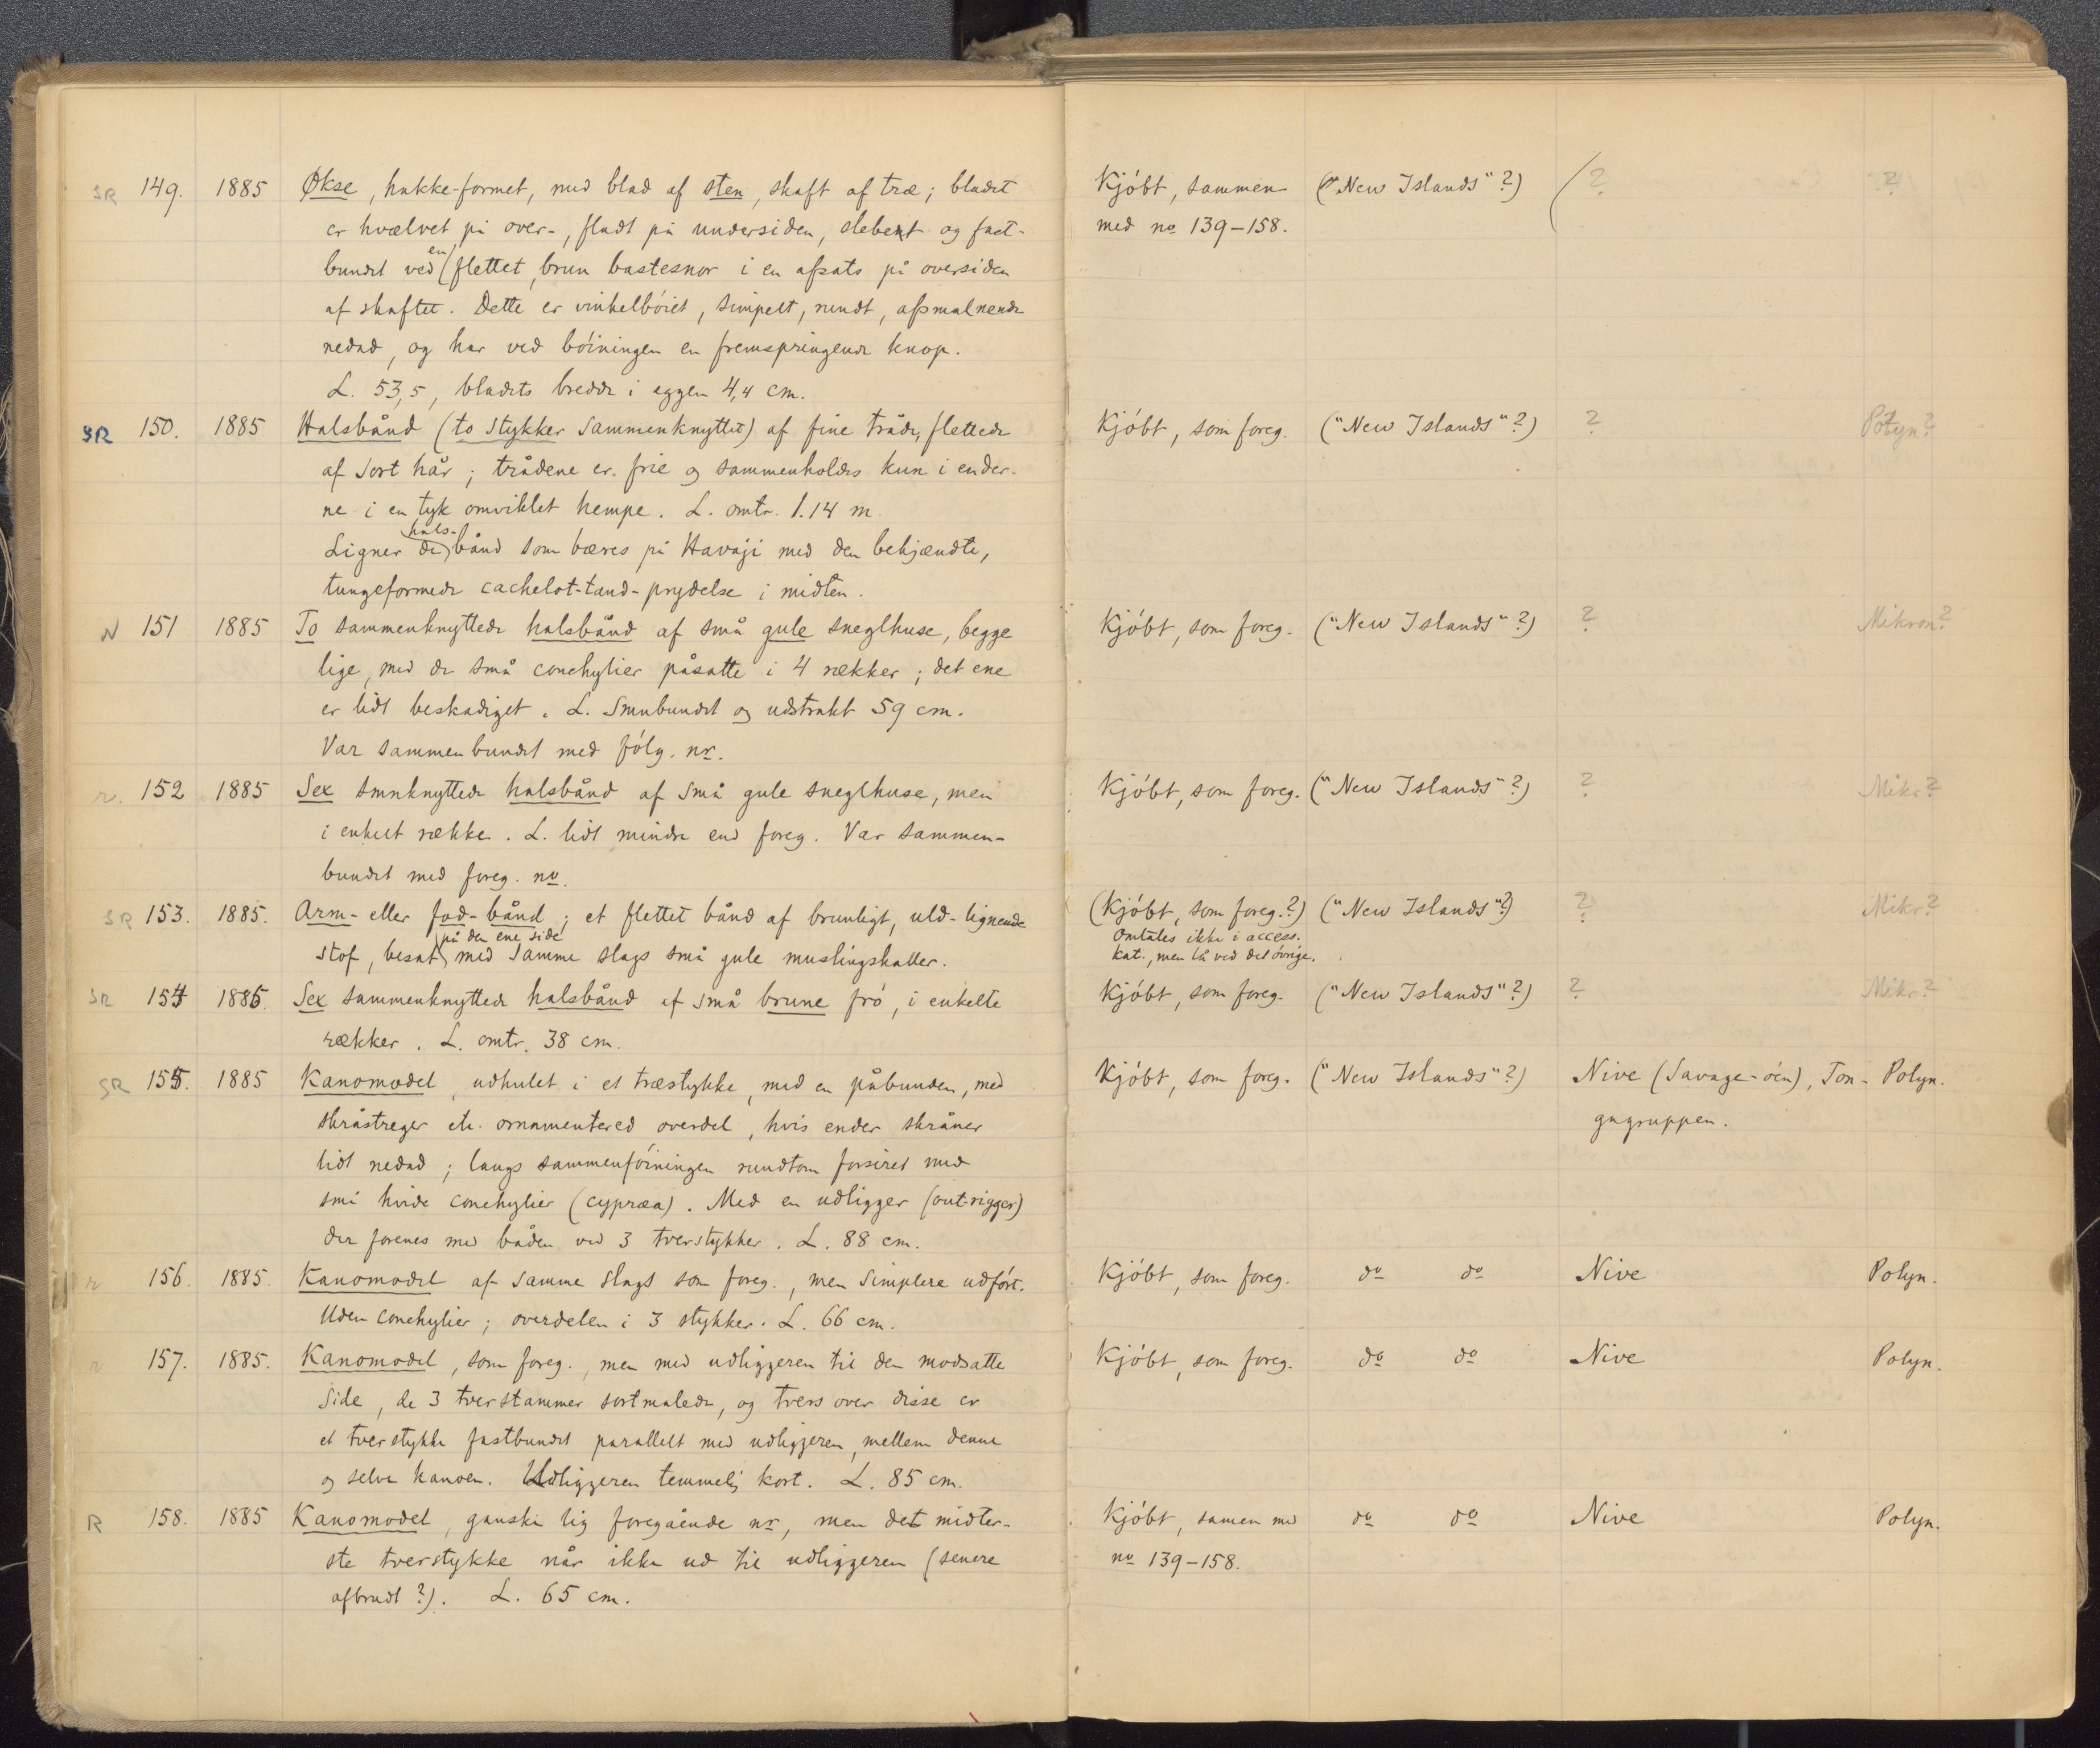 SR 149. 1885 Økse, hakke-formet, med blad af sten, skaft af træ; bladet
er hvælvet på over-, fladt på undersiden, slebent og fast-
bundet ved en flettet, brun bastesnor i en afsats på oversiden
af skaftet. Dette er vinkelbóiet, simpelt, rundt, afsmalnende
nedad, og har ved bóiningen en fremspringende knop.
L. 53,5, bladets bredde i eggen 4,4 cm.
Kjóbt, sammen ("New Islands"?) ( ? ?
med no 139–158.
SR 150. 1885 Halsbånd (to stykker sammenknyttet) af fine tråde, flettede
af sort hår; trådene er frie og sammenholdes kun i ender-
ne i en tyk omviklet hempe. L. omtr. 1.14 m.
Ligner de hals-bånd som bæres på Havaji med den bekjændte,
tungeformede cachelot-tand-prydelse i midten.
Kjóbt, som foreg. ("New Islands"?) ? Polyn?
N 151 1885 To sammenknyttede halsbånd af små gule sneglhuse, begge
lige, med de små conchylier påsatte i 4 rækker; det ene
er lidt beskadiget. L. smnbundet og udstrakt 59 cm.
Var sammenbundet med fólg. nr.
Kjóbt, som foreg. ("New Islands"?) ? Mikron?
r. 152 1885 Sex smnknyttede halsbånd af små gule sneglhuse, men
i enkelt række. L. lidt mindre end foreg. Var sammen-
bundet med foreg. no.
Kjóbt, som foreg. ("New Islands"?) ? Mikr?
SR 153. 1885. Arm- eller fod-bånd; et flettet bånd af brunligt, uld-lignende
stof, besat på den ene side med samme slags små gule muslingskaller.
(Kjóbt, som foreg.?) ("New Islands"?) ? Mikr?
Omtales ikke i access.
kat., men lå ved det óvrige.
SR 154 1885. Sex sammenknyttede halsbånd af små brune fró, i enkelte
rækker. L. omtr. 38 cm.
Kjóbt, som foreg. ("New Islands"?) ? Mikr?
SR 155. 1885 Kanomodel, udhulet i et træstykke, med en påbunden, med
skråstreger etc. ornamentered overdel, hvis ender skråner
lidt nedad; langs sammenfóiningen rundtom forsiret med
små hvide conchylier (cypræa). Med en udligger (out-rigger)
der forenes med båden ved 3 tverstykker. L. 88 cm.
Kjóbt, som foreg. ("New Islands"?) Nive (Savage-óen), Ton- Polyn.
gagruppen.
r 156. 1885. Kanomodel af samme slags som foreg., men simplere udfórt.
Uden conchylier; overdelen i 3 stykker. L. 66 cm.
Kjóbt, som foreg. do do Nive Polyn.
r 157. 1885. Kanomodel, som foreg., men med udliggeren til den modsatte
side, de 3 tverstammer sortmalede, og tvers over disse er
et tverstykke fastbundet parallelt med udliggeren, mellem denne
og selve kanoen. Udliggeren temmelig kort. L. 85 cm.
Kjóbt, som foreg. do do Nive Polyn.
R 158. 1885 Kanomodel, ganske lig foregående nr, men det midter-
ste tverstykke når ikke ud til udliggeren (senere
afbrudt?). L. 65 cm.
Kjóbt, samen med do do Nive Polyn.
no 139–158.